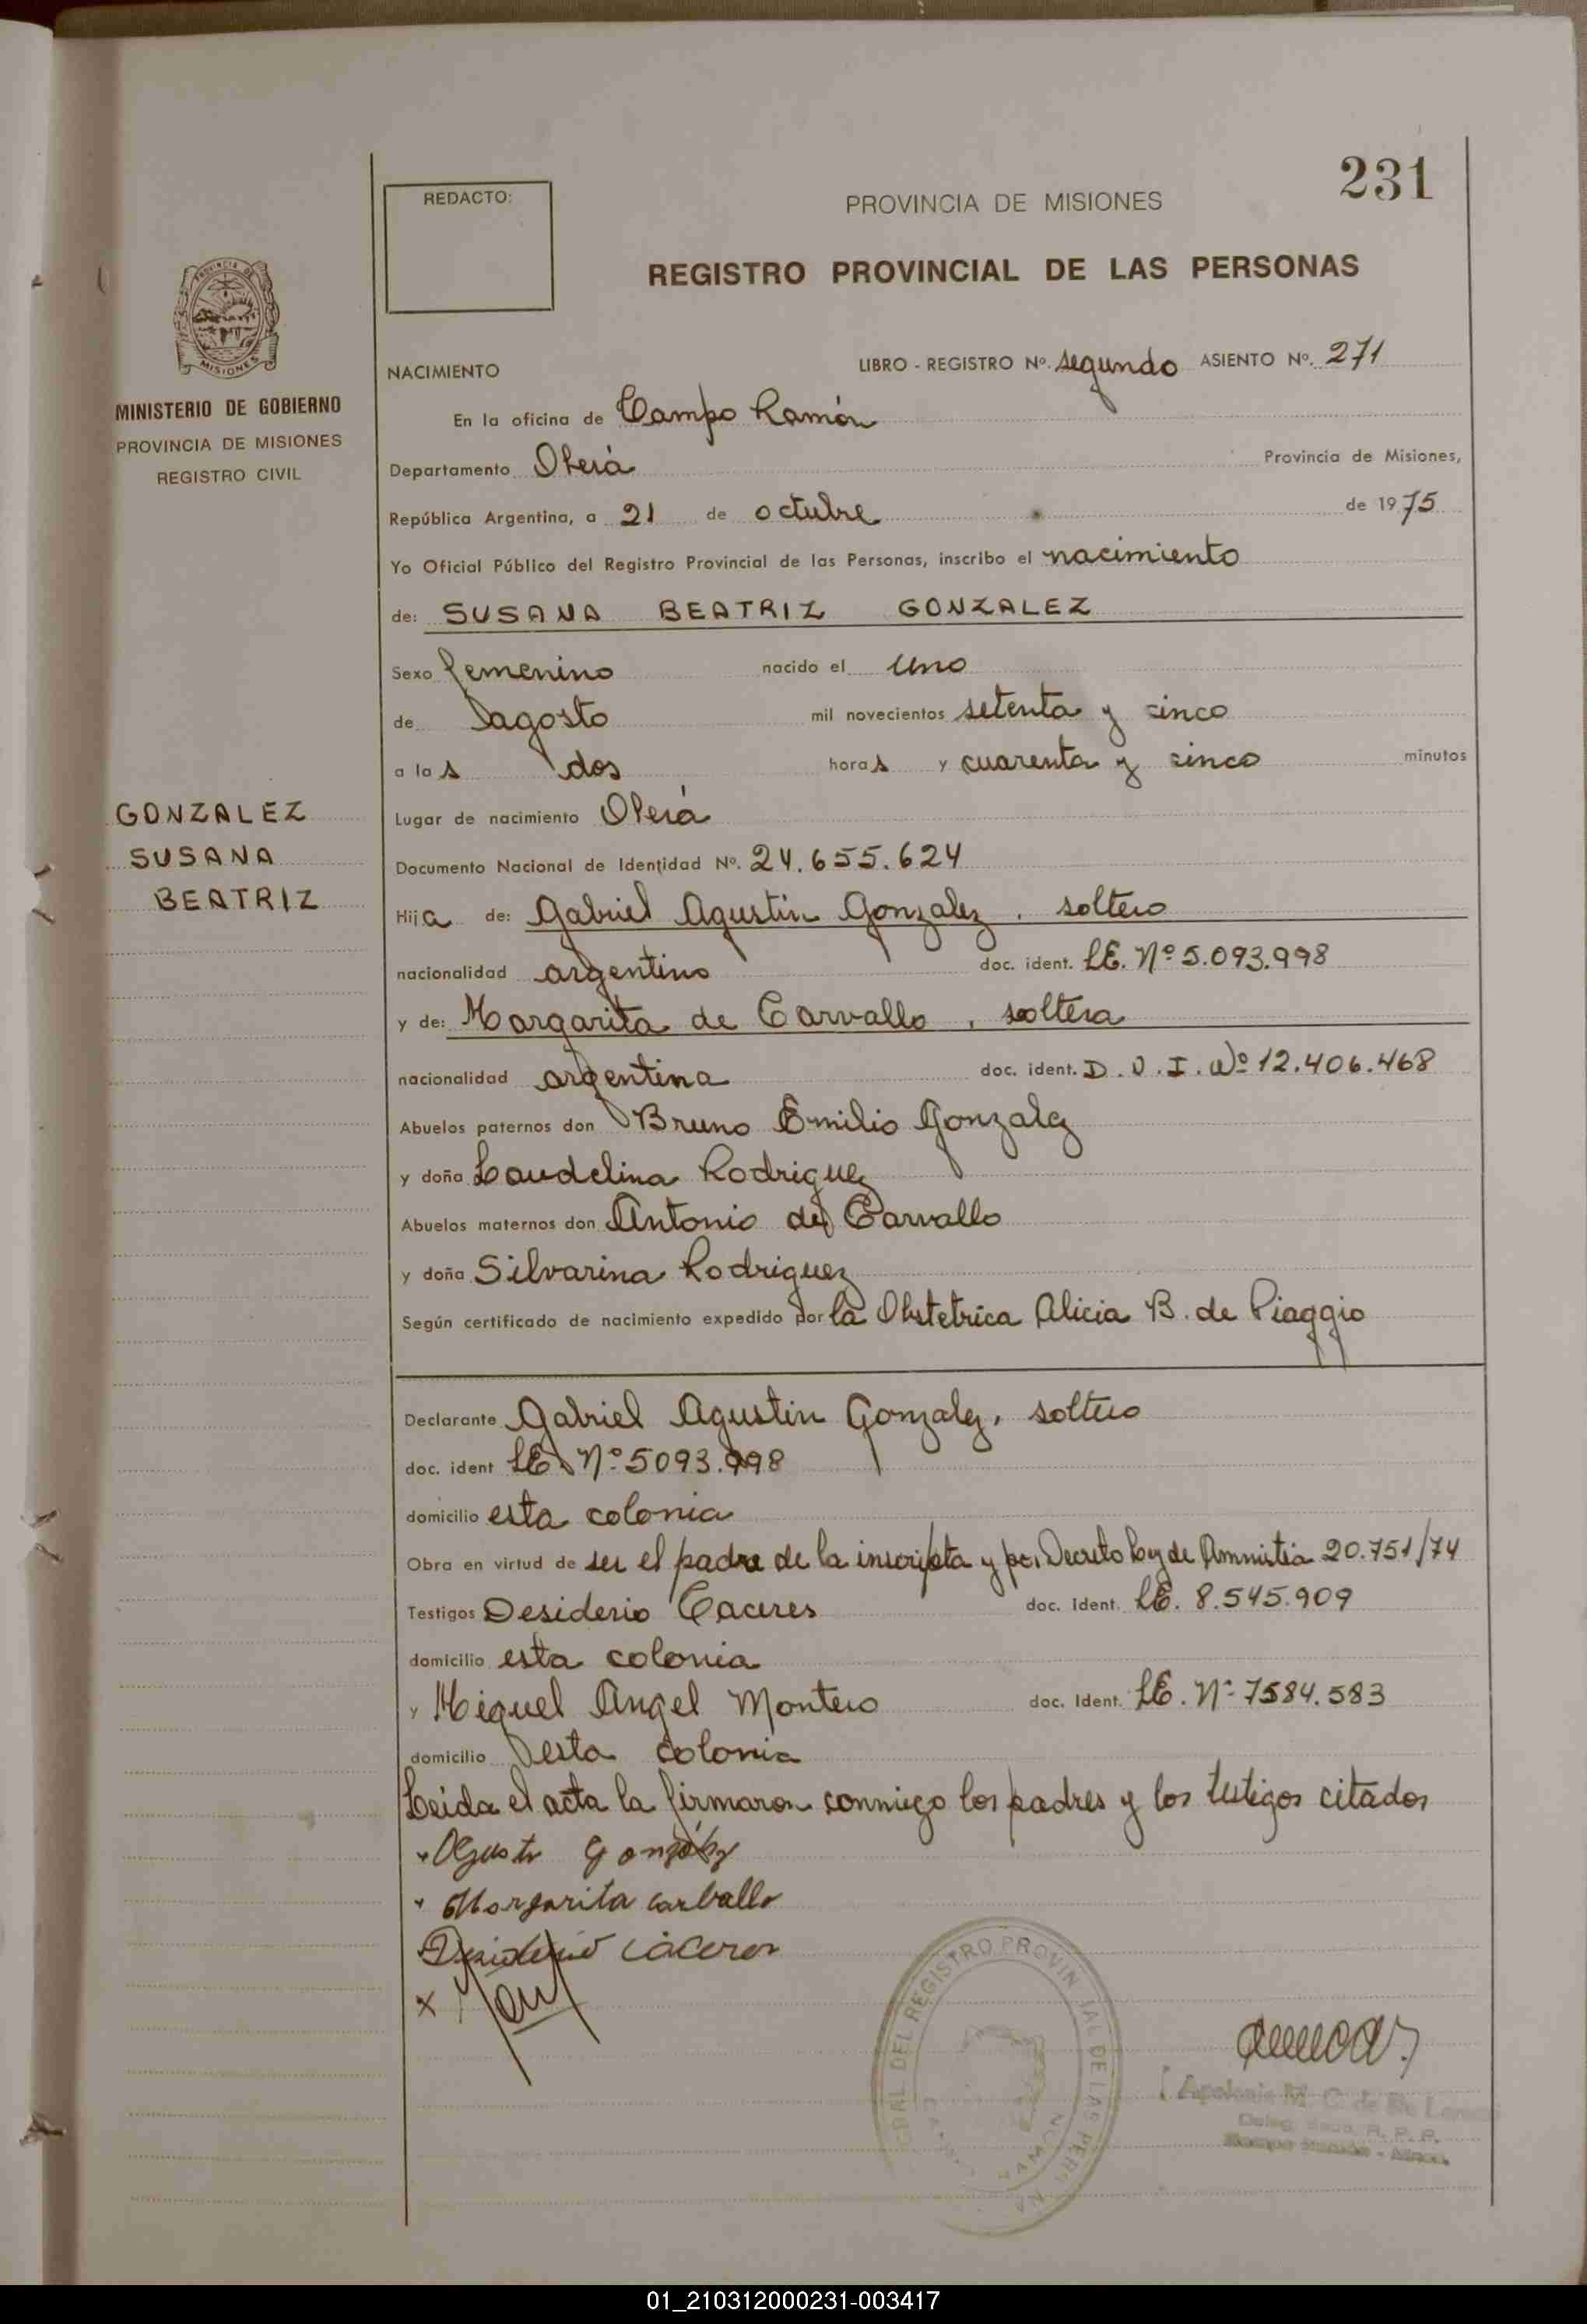 231
REDACTO:
PROVINCIA DE MISIONES
REGISTRO PROVINCIAL DE LAS PERSONAS
PROVINCIA DE
MISIONES
MINISTERIO DE GOBIERNO
PROVINCIA DE MISIONES
REGISTRO CIVIL
GONZALEZ
SUSANA
BEATRIZ
NACIMIENTO LIBRO - REGISTRO Nº. segundo ASIENTO Nº. 271
En la oficina de Campo Ramón
Departamento Oberá Provincia de Misiones,
República Argentina, a 21 de octubre de 1975
Yo Oficial Público del Registro Provincial de las Personas, inscribo el nacimiento
de: SUSANA BEATRIZ GONZALEZ
Sexo femenino nacido el uno
de agosto mil novecientos setenta y cinco
a las dos horas y cuarenta y cinco minutos
Lugar de nacimiento Oberá
Documento Nacional de Identidad Nº. 24.655.624
Hija de: Gabriel Agustin Gonzalez, soltero
nacionalidad argentino doc. ident. LE. Nº 5.093.998
y de: Margarita de Carvallo, soltera
nacionalidad argentina doc. ident. D.N.I. Nº 12.406.468
Abuelos paternos don Bruno Emilio Gonzalez
y doña Laudelina Rodriguez
Abuelos maternos don Antonio de Carvallo
y doña Silvarina Rodriguez
Según certificado de nacimiento expedido por la Obstetrica Alicia B. de Piaggio
Declarante Gabriel Agustin Gonzalez, soltero
doc. ident LE Nº 5093.998
domicilio esta colonia
Obra en virtud de ser el padre de la inscripta y por Decreto Ley de Amnistia 20.751/74
Testigos Desiderio Caceres doc. ident. LE. 8.545.909
domicilio esta colonia
y Miguel Angel Montero doc. Ident. LE. Nº 7584.583
domicilio esta colonia
Leida el acta la firmaron conmigo los padres y los testigos citados
Agustin Gonzalez
Margarita Carballo
Desiderio Caceres
REGISTRO PROVINCIAL DE LAS PERSONAS
01_210312000231-003417